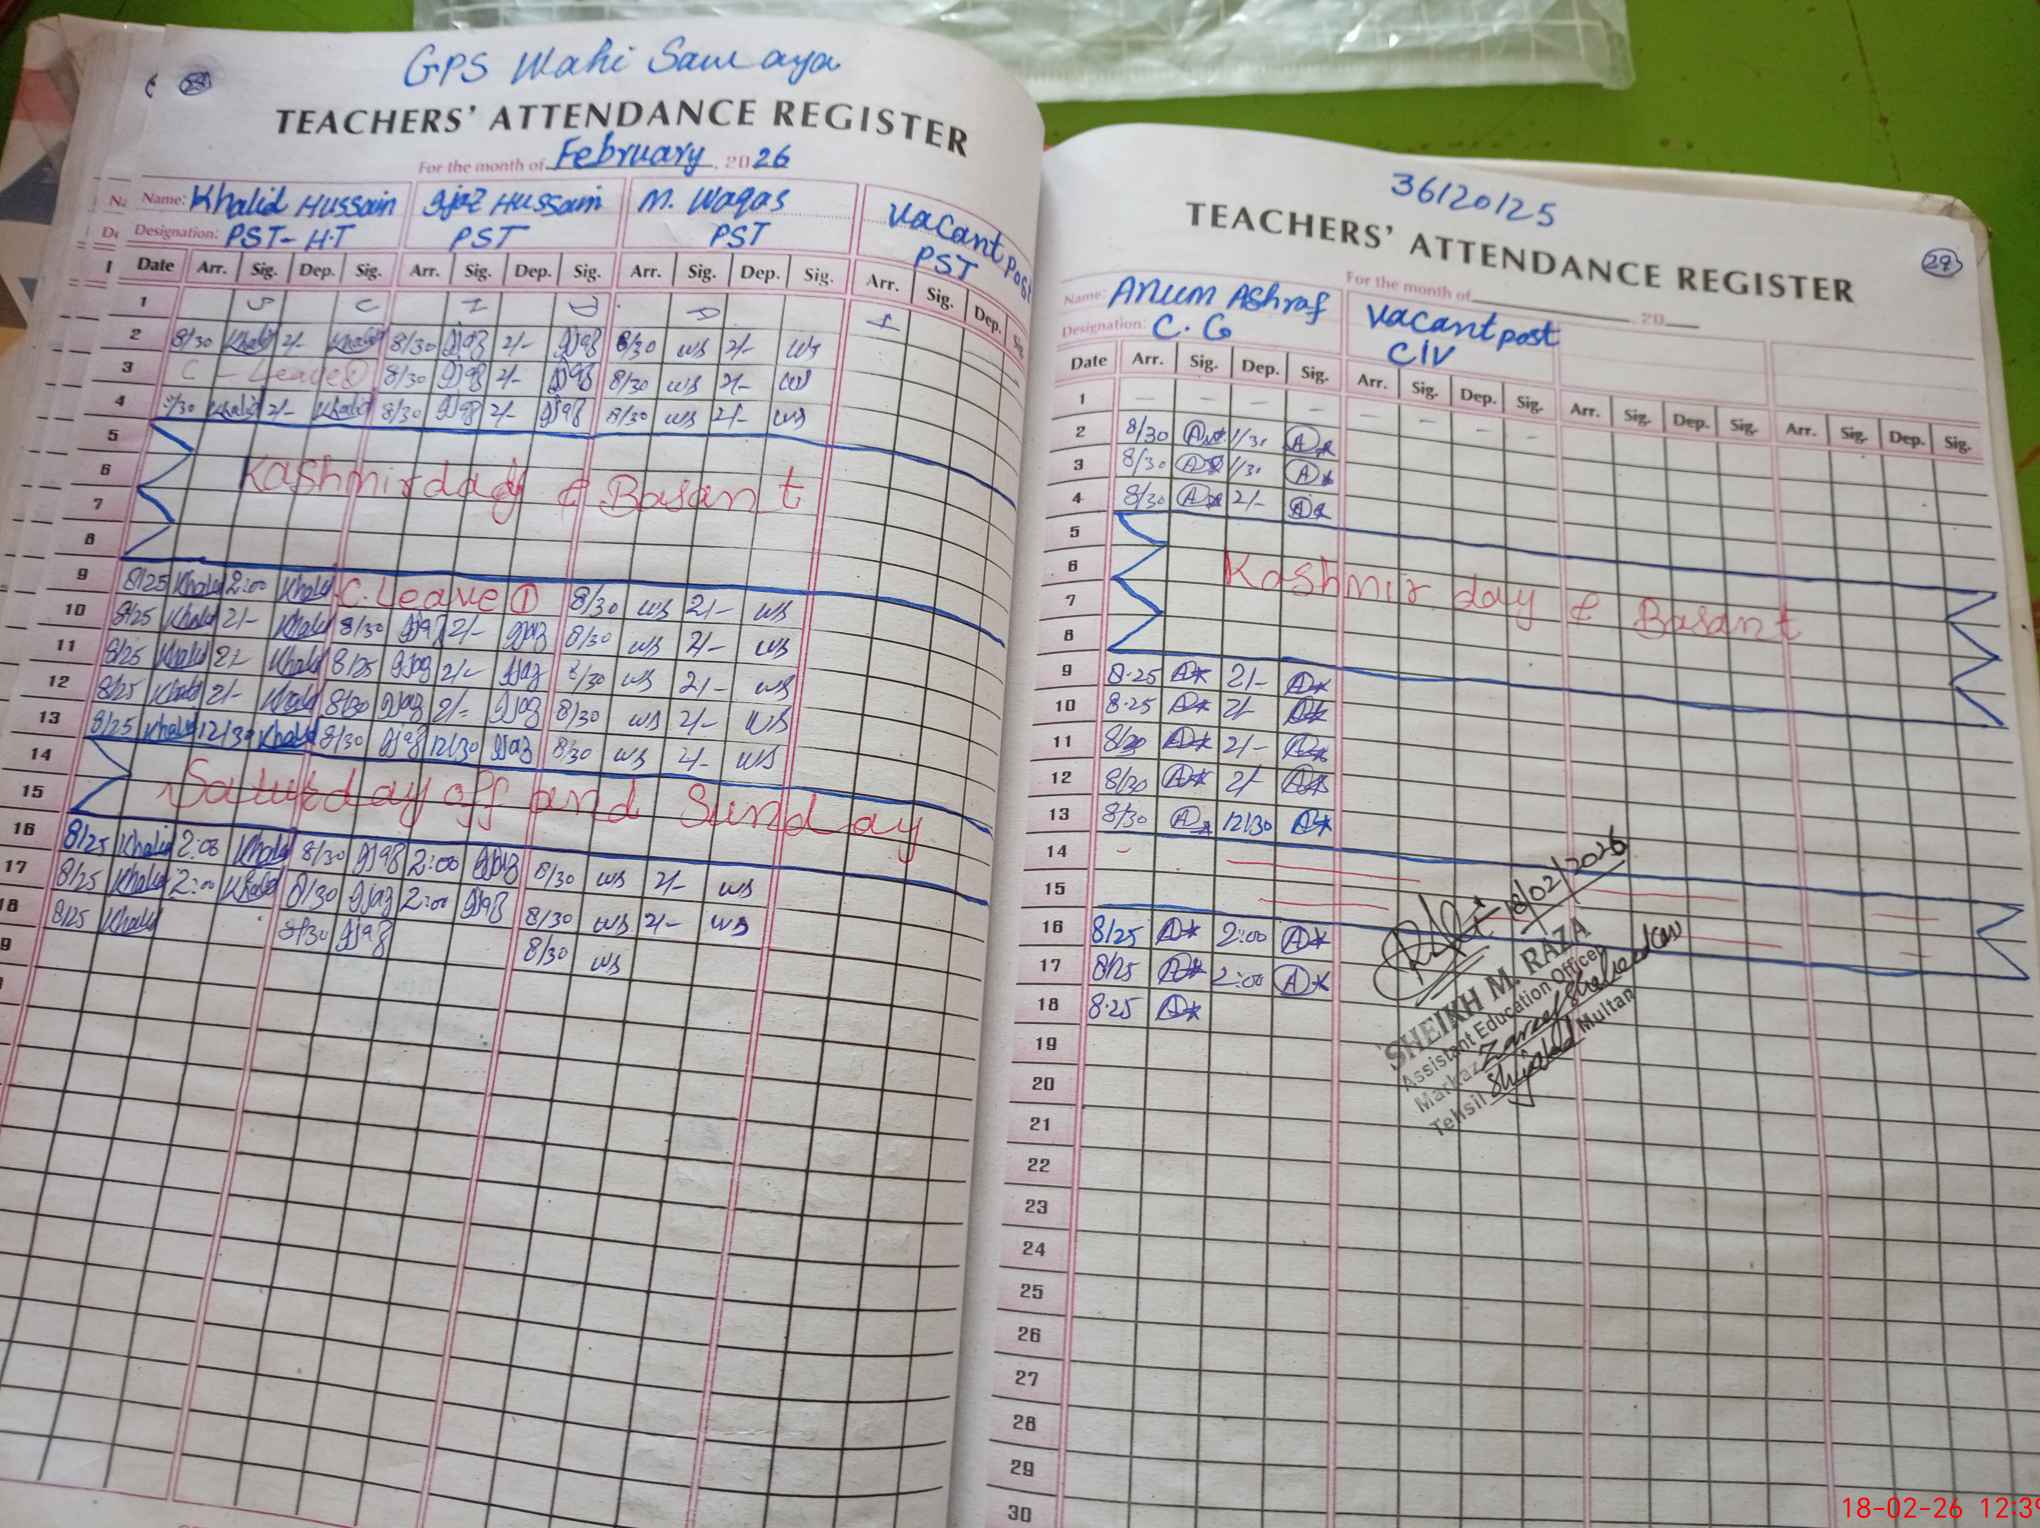 GPS Wahi Sawaya
TEACHERS' ATTENDANCE REGISTER
For the month of February, 2026
Name: Khalid Hussain Ijaz Hussain M. Waqas Vacant Post
Designation: PST-H.T PST PST PST
Date Arr. Sig. Dep. Sig. Arr. Sig. Dep. Sig. Arr. Sig. Dep. Sig. Arr. Sig. Dep. Sig.
1
2 8/30 Khalid 2/- Khalid 8/30 Ijaz 2/- Ijaz 8/30 ws 2/- ws
3 C-Leave 8/30 Ijaz 2/- Ijaz 8/30 ws 2/- ws
4 8/30 Khalid 2/- Khalid 8/30 Ijaz 2/- Ijaz 8/30 ws 2/- ws
5
6 Kashmir day & Basant
7
8
9 8/25 Khalid 2:00 Khalid C.Leave ① 8/30 ws 2/- ws
10 8/25 Khalid 2/- Khalid 8/30 Ijaz 2/- Ijaz 8/30 ws 2/- ws
11 8/25 Khalid 2/- Khalid 8/25 Ijaz 2/- Ijaz 8/30 ws 2/- ws
12 8/25 Khalid 2/- Khalid 8/30 Ijaz 2/- Ijaz 8/30 ws 2/- ws
13 8/25 Khalid 12/30 Khalid 8/30 Ijaz 12/30 Ijaz 8/30 ws 2/- ws
14
15 Saturday off and Sunday
16 8/25 Khalid 2:00 Khalid 8/30 Ijaz 2:00 Ijaz 8/30 ws 2/- ws
17 8/25 Khalid 2:00 Khalid 8/30 Ijaz 2:00 Ijaz 8/30 ws 2/- ws
18 8/25 Khalid 8/30 Ijaz 8/30 ws
9
36120125
29
TEACHERS' ATTENDANCE REGISTER
For the month of 20
Name: Anum Ashraf Vacant post
Designation: C.G CIV
Date Arr. Sig. Dep. Sig. Arr. Sig. Dep. Sig. Arr. Sig. Dep. Sig. Arr. Sig. Dep. Sig.
1 - - - - - - - -
2 8/30 1/30
3 8/30 1/30
4 8/30 2/-
5
6 Kashmir day & Basant
7
8
9 8.25 2/-
10 8.25 2/-
11 8/30 2/-
12 8/30 2/-
13 8/30 12/30
14
15
16 8/25 2:00
17 8/25 2:00
18 8.25
19
20
21
22
23
24
25
26
27
28
29
30
18/02/2026
SHEIKH M. RAZA
Assistant Education Officer
Markaz
Tehsil Multan
18-02-26 12:39